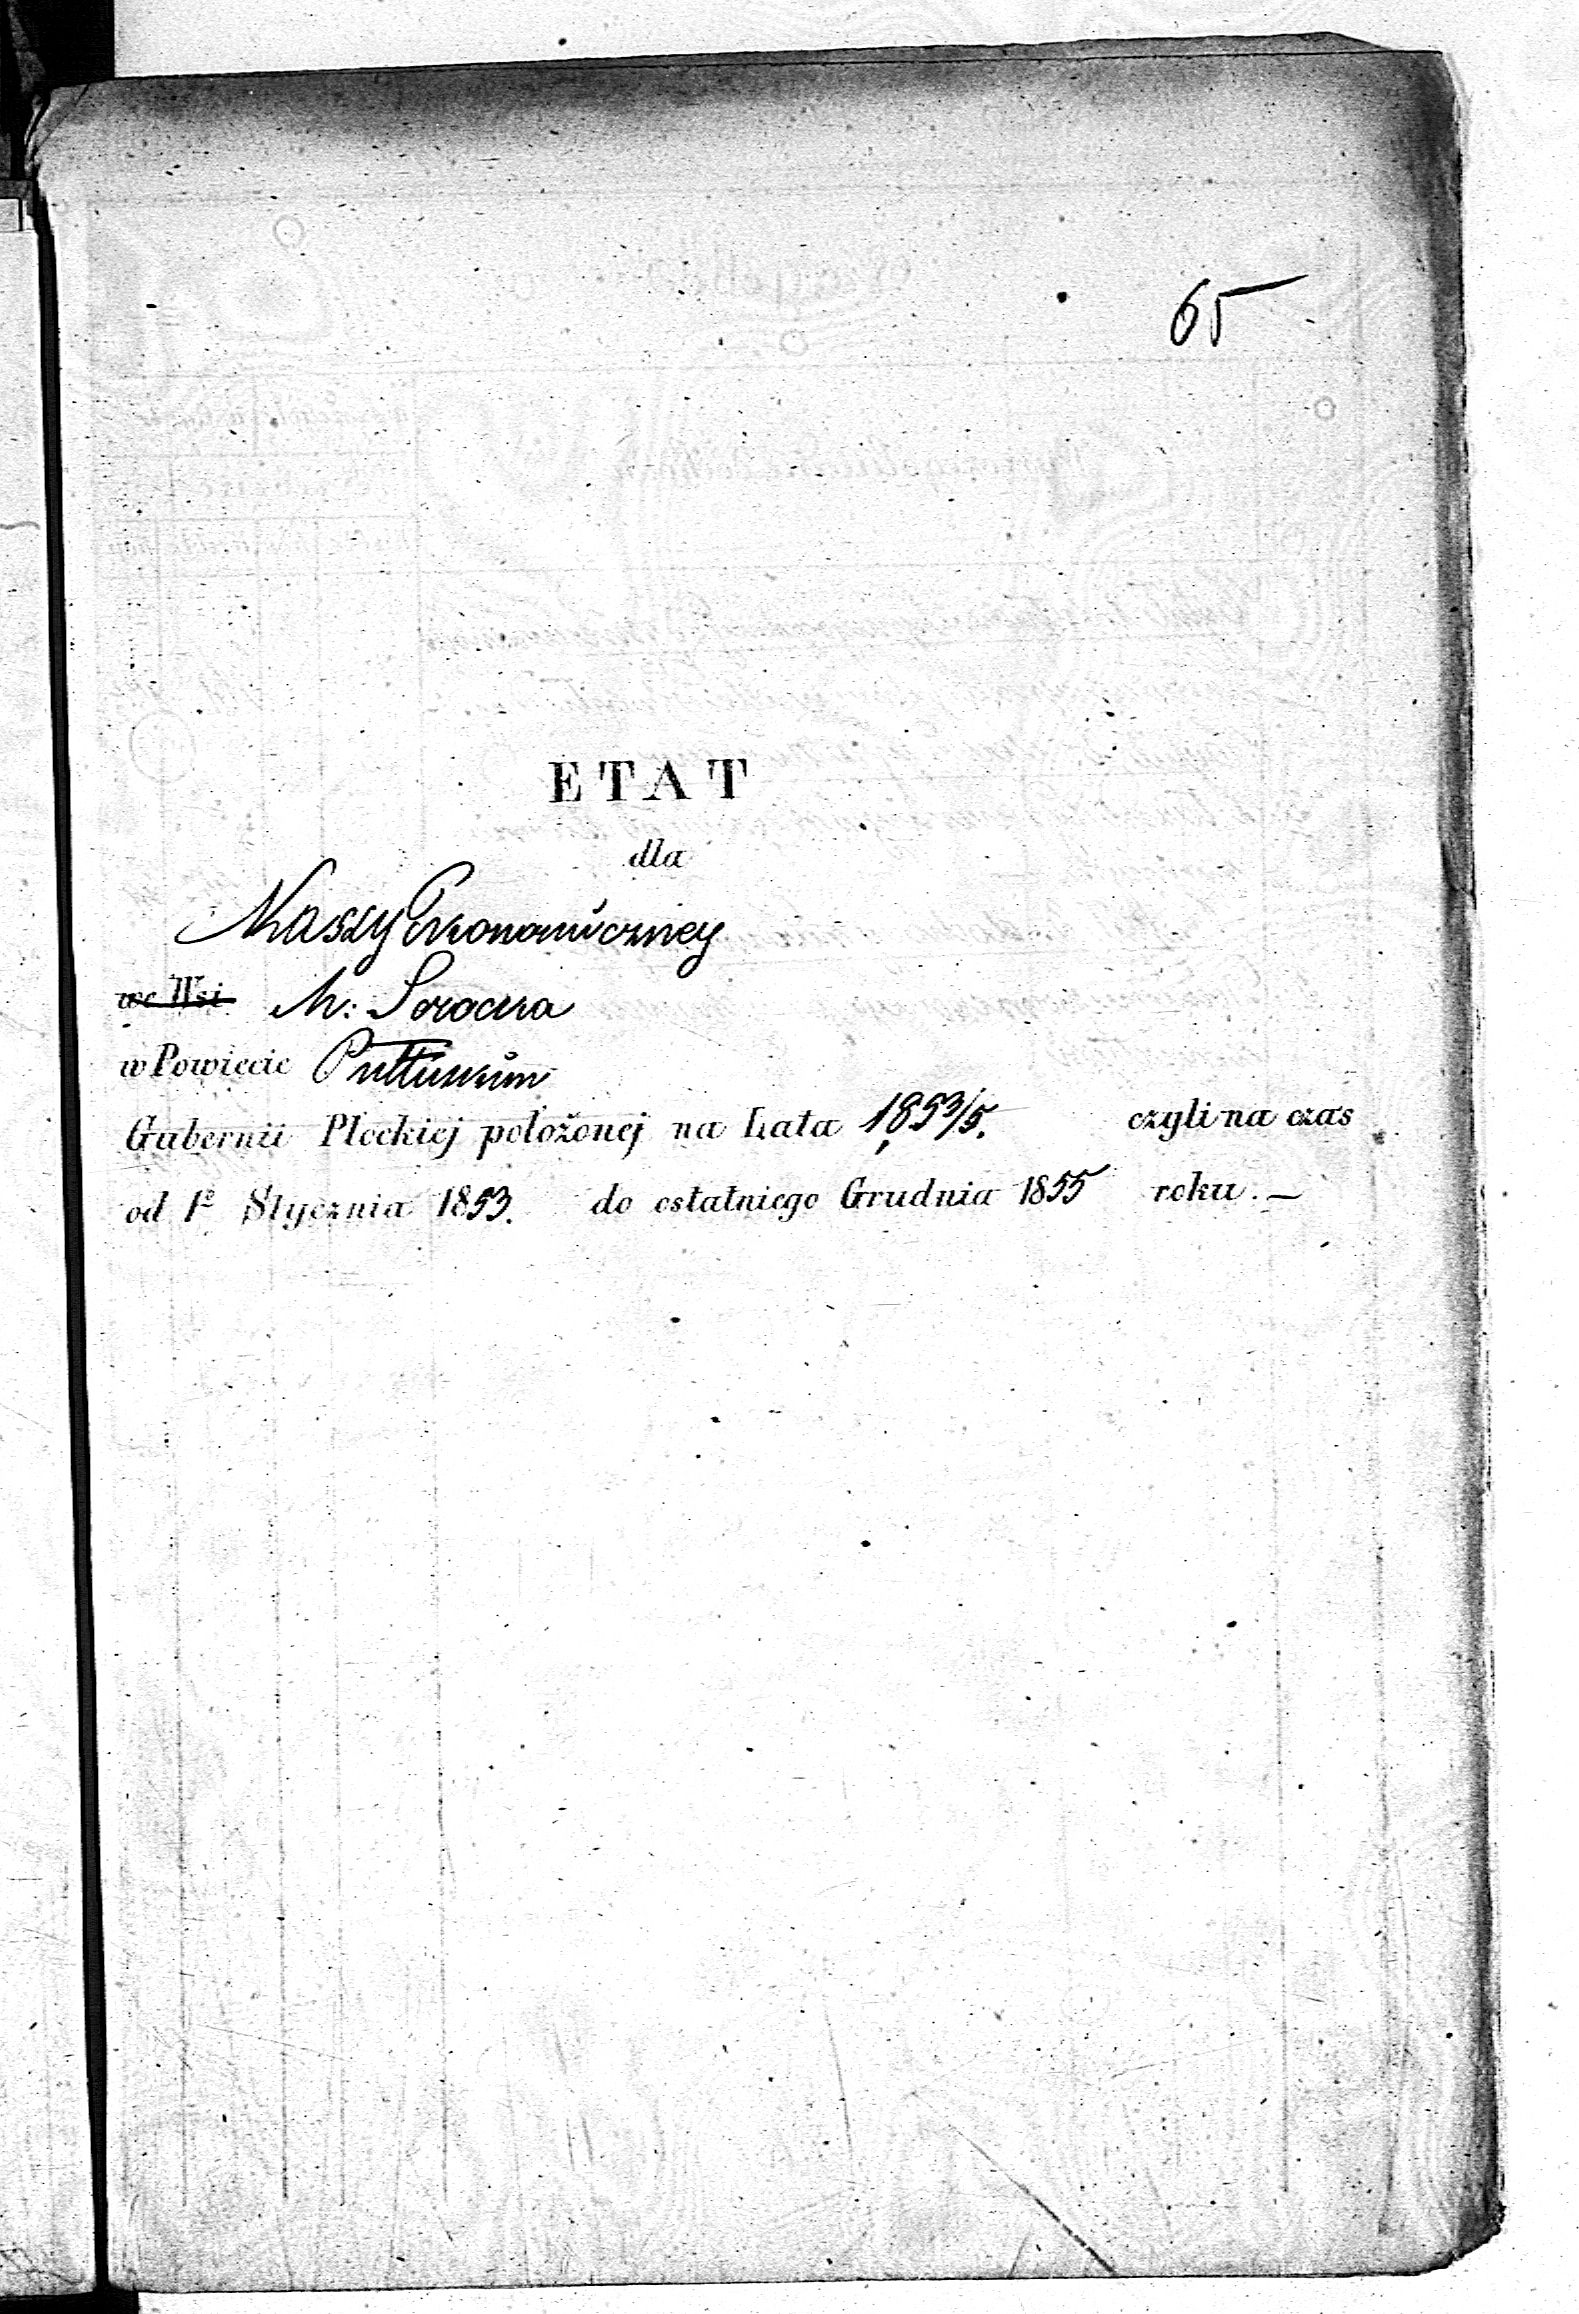 65
ETAT
dla
Kassy Ekonomiczney
we Wsi M: Serocka
w Powiecie Pułtuskim
Gubernii Płockiej położonej na Lata 1853/5. czyli na czas
od 1º Stycznia 1853. do ostatniego Grudnia 1855 roku. —